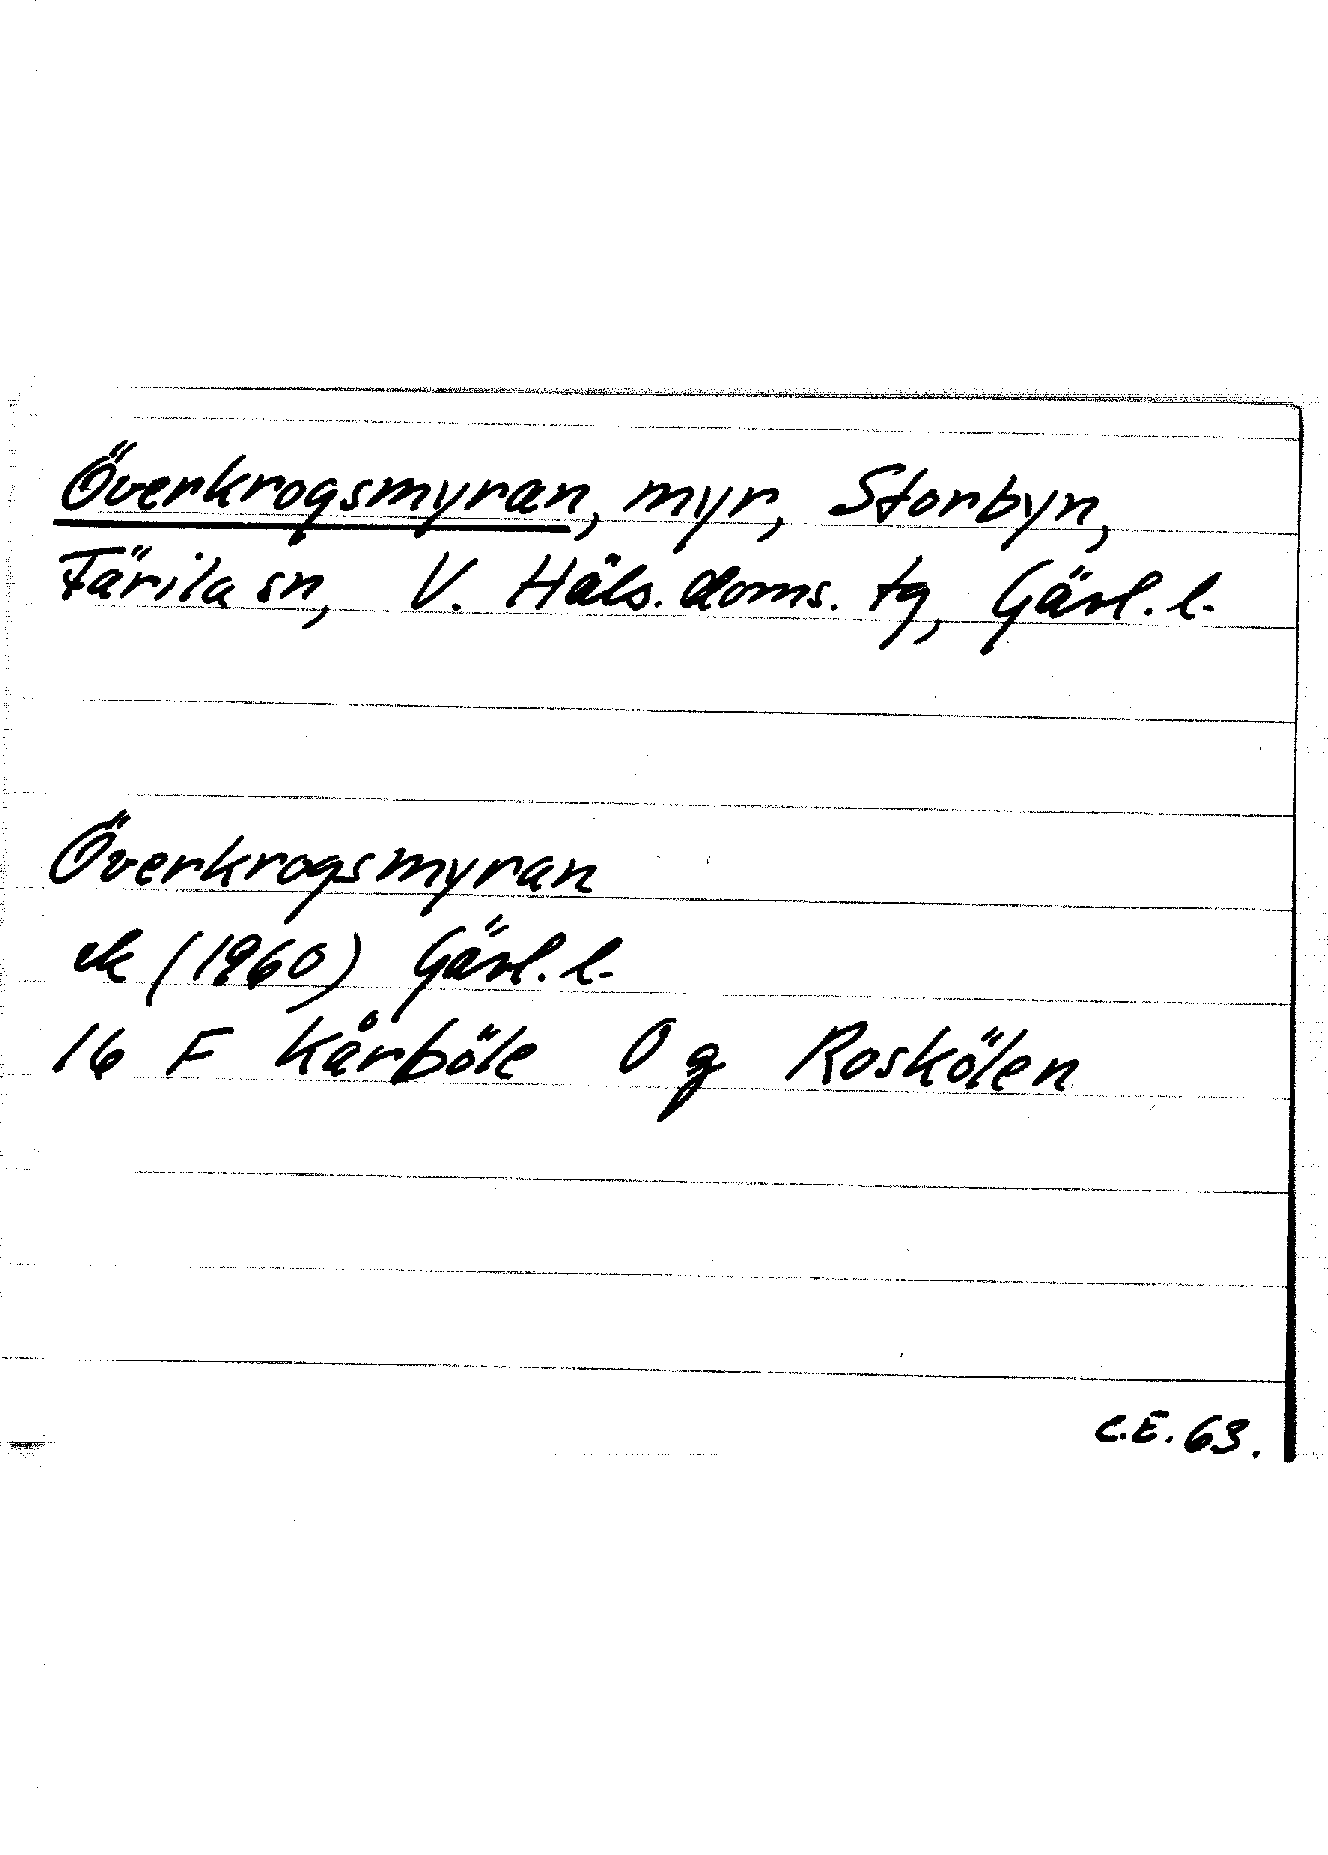 Överkrogsmyran, myr, Storbyn,
Färila sn, V. Häls. doms. tg, Gävl. l.
Överkrogsmyran
ek (1960) Gävl. l.
16 F Kårböle 0 g Roskölen
C.E. 63.